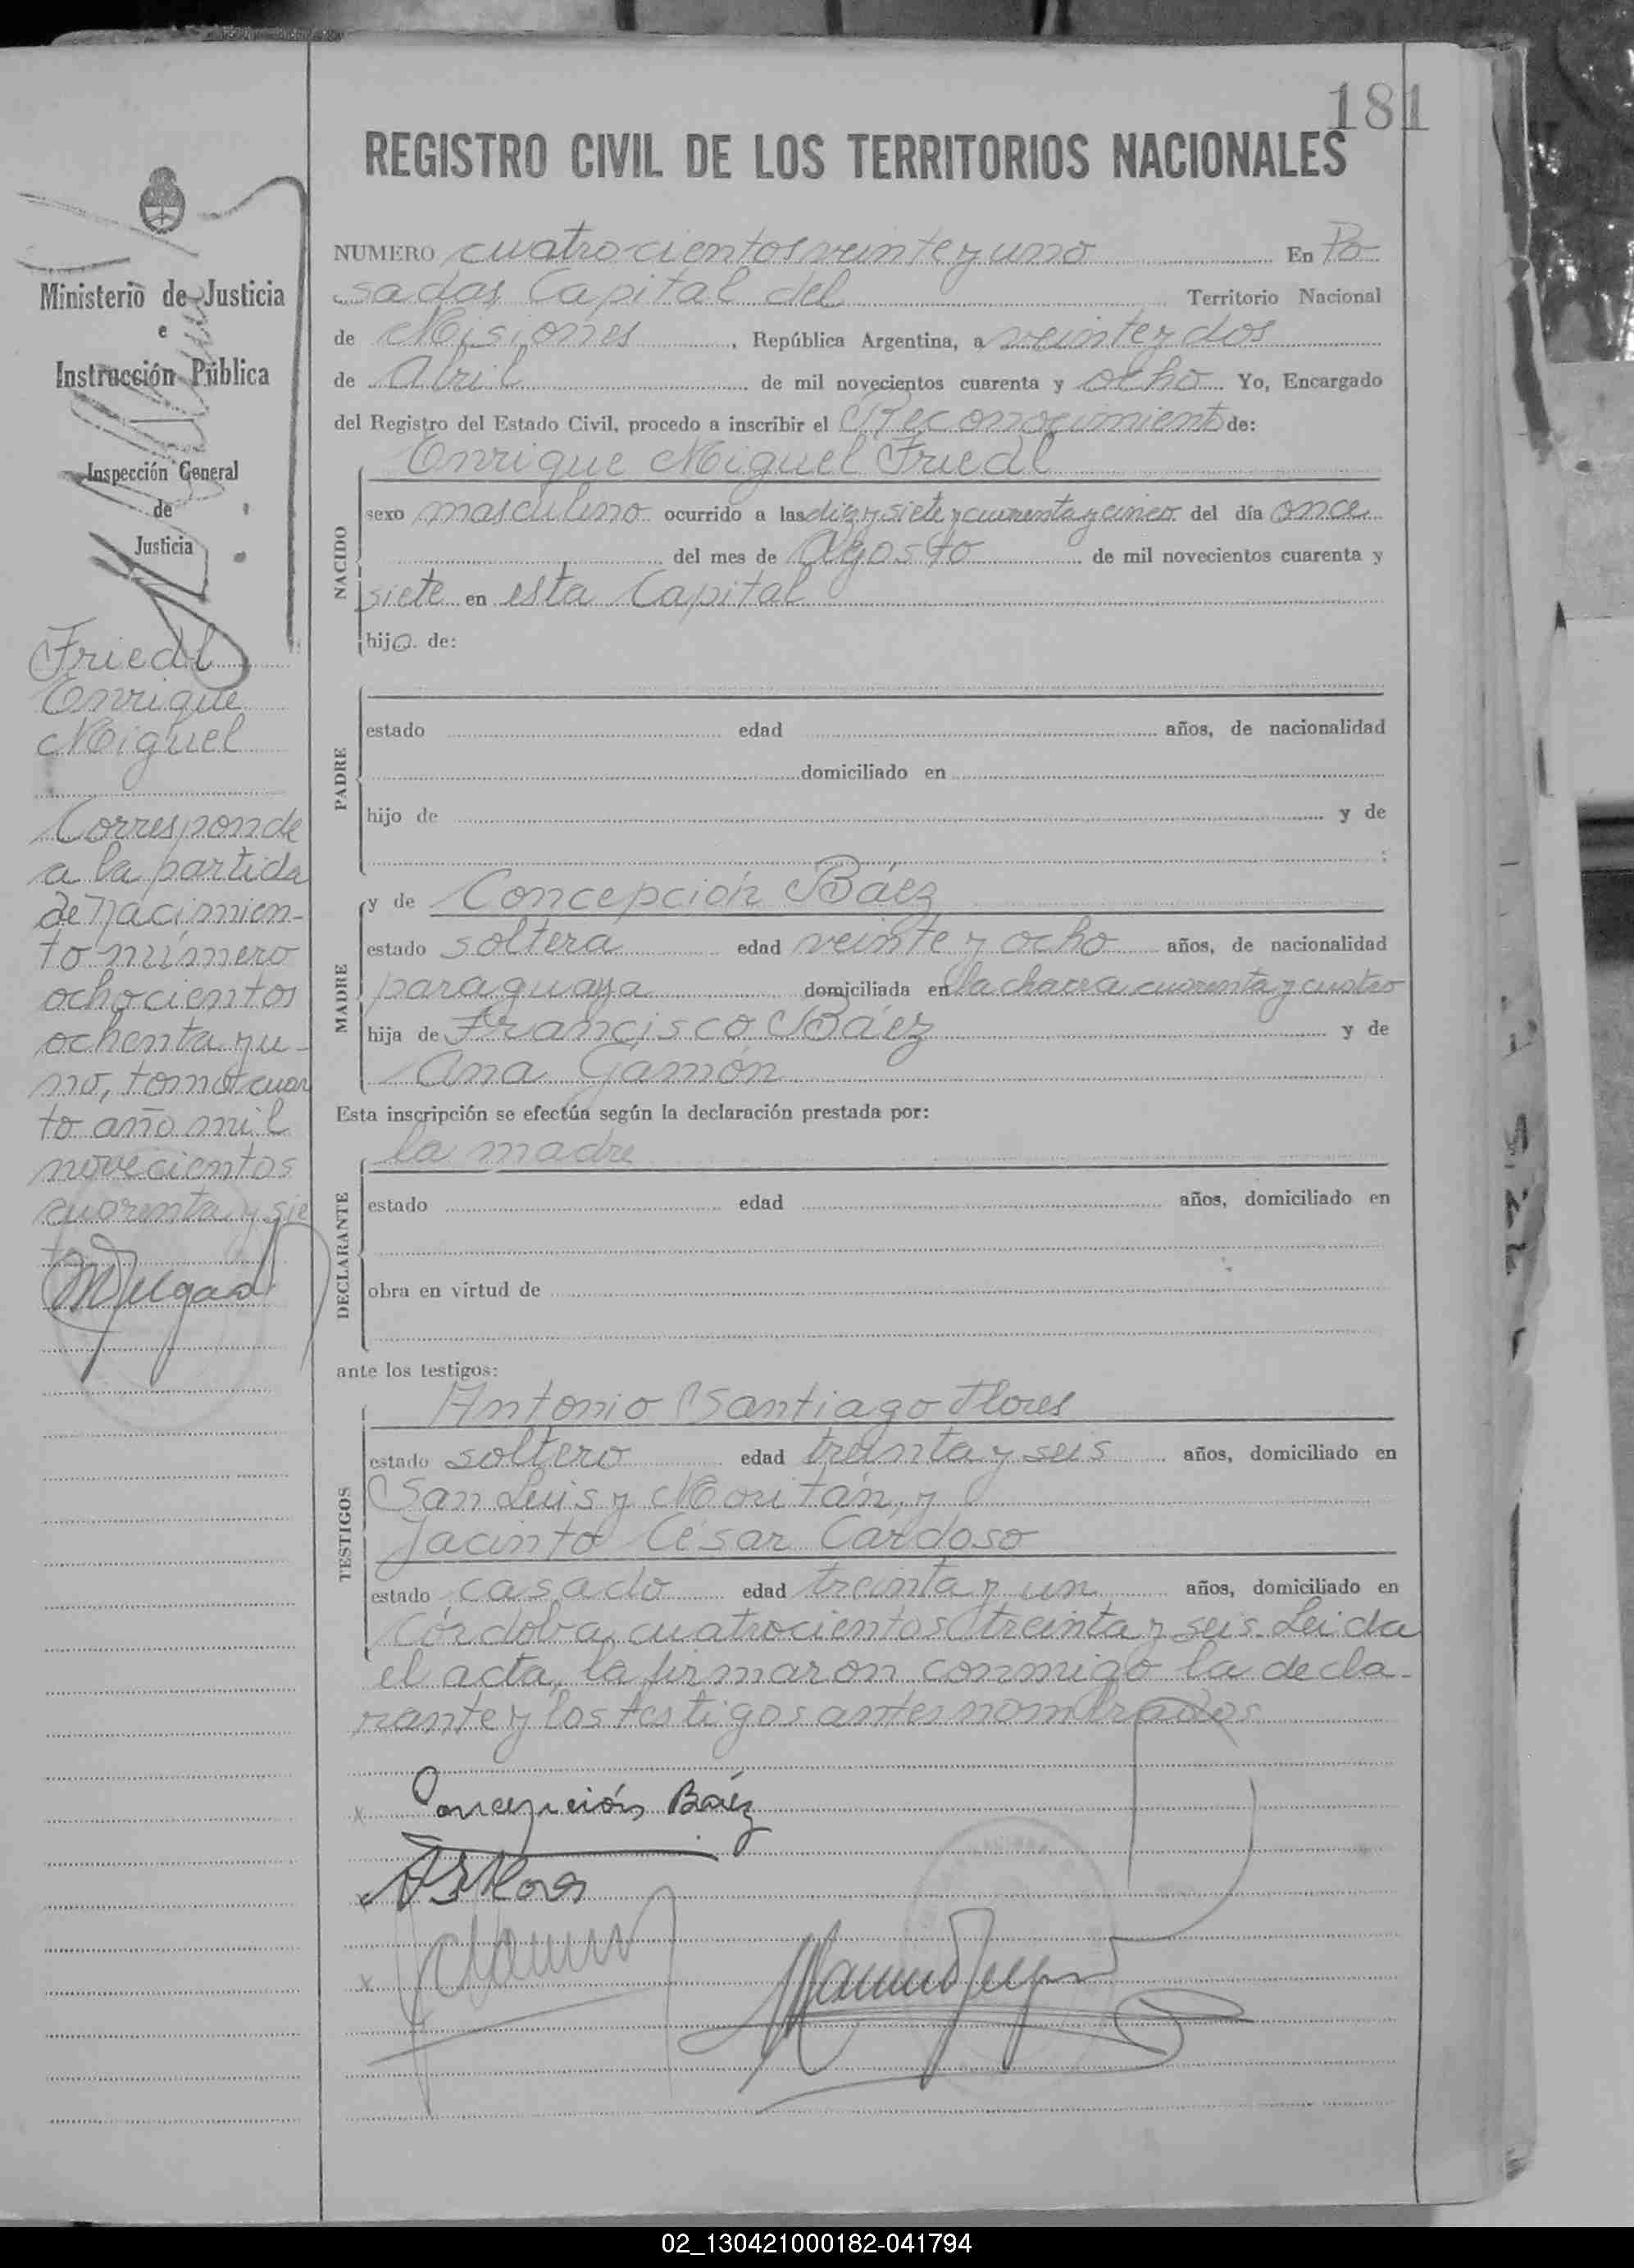 181
REGISTRO CIVIL DE LOS TERRITORIOS NACIONALES
NUMERO cuatrocientos veinte y uno En Po-
sadas, Capital del Territorio Nacional
de Misiones, República Argentina, a veinte y dos
de Abril de mil novecientos cuarenta y ocho Yo, Encargado
del Registro del Estado Civil, procedo a inscribir el Reconocimiento de:
Enrique Miguel Friedl
NACIDO
sexo masculino ocurrido a las diez y siete y cuarenta y cinco del día once
del mes de Agosto de mil novecientos cuarenta y
siete en esta Capital
hijo de:
PADRE
estado edad años, de nacionalidad
domiciliado en
hijo de y de
:
MADRE
y de Concepción Báez
estado soltera edad veinte y ocho años, de nacionalidad
paraguaya domiciliada en la chacra cuarenta y cuatro
hija de Francisco Báez y de
Ana Gamón
Esta inscripción se efectúa según la declaración prestada por:
la madre
DECLARANTE
estado edad años, domiciliado en
obra en virtud de
ante los testigos:
TESTIGOS
Antonio Santiago Flores
estado soltero edad treinta y seis años, domiciliado en
San Luis y Moritán, y
Jacinto César Cardoso
estado casado edad treinta y un años, domiciliado en
Córdoba cuatrocientos treinta y seis. Leida
el acta, la firmaron conmigo la decla-
rante y los testigos antes nombrados
x Concepción Báez
x ASFlores
x
Ministerio de Justicia
e
Instrucción Pública
Inspección General
de
Justicia
Friedl
Enrique
Miguel
Corresponde
a la partida
de nacimien-
to número
ochocientos
ochenta y u-
no, tomo cuar
to año mil
novecientos
cuarenta y sie
te
MDelgado
02_130421000182-041794